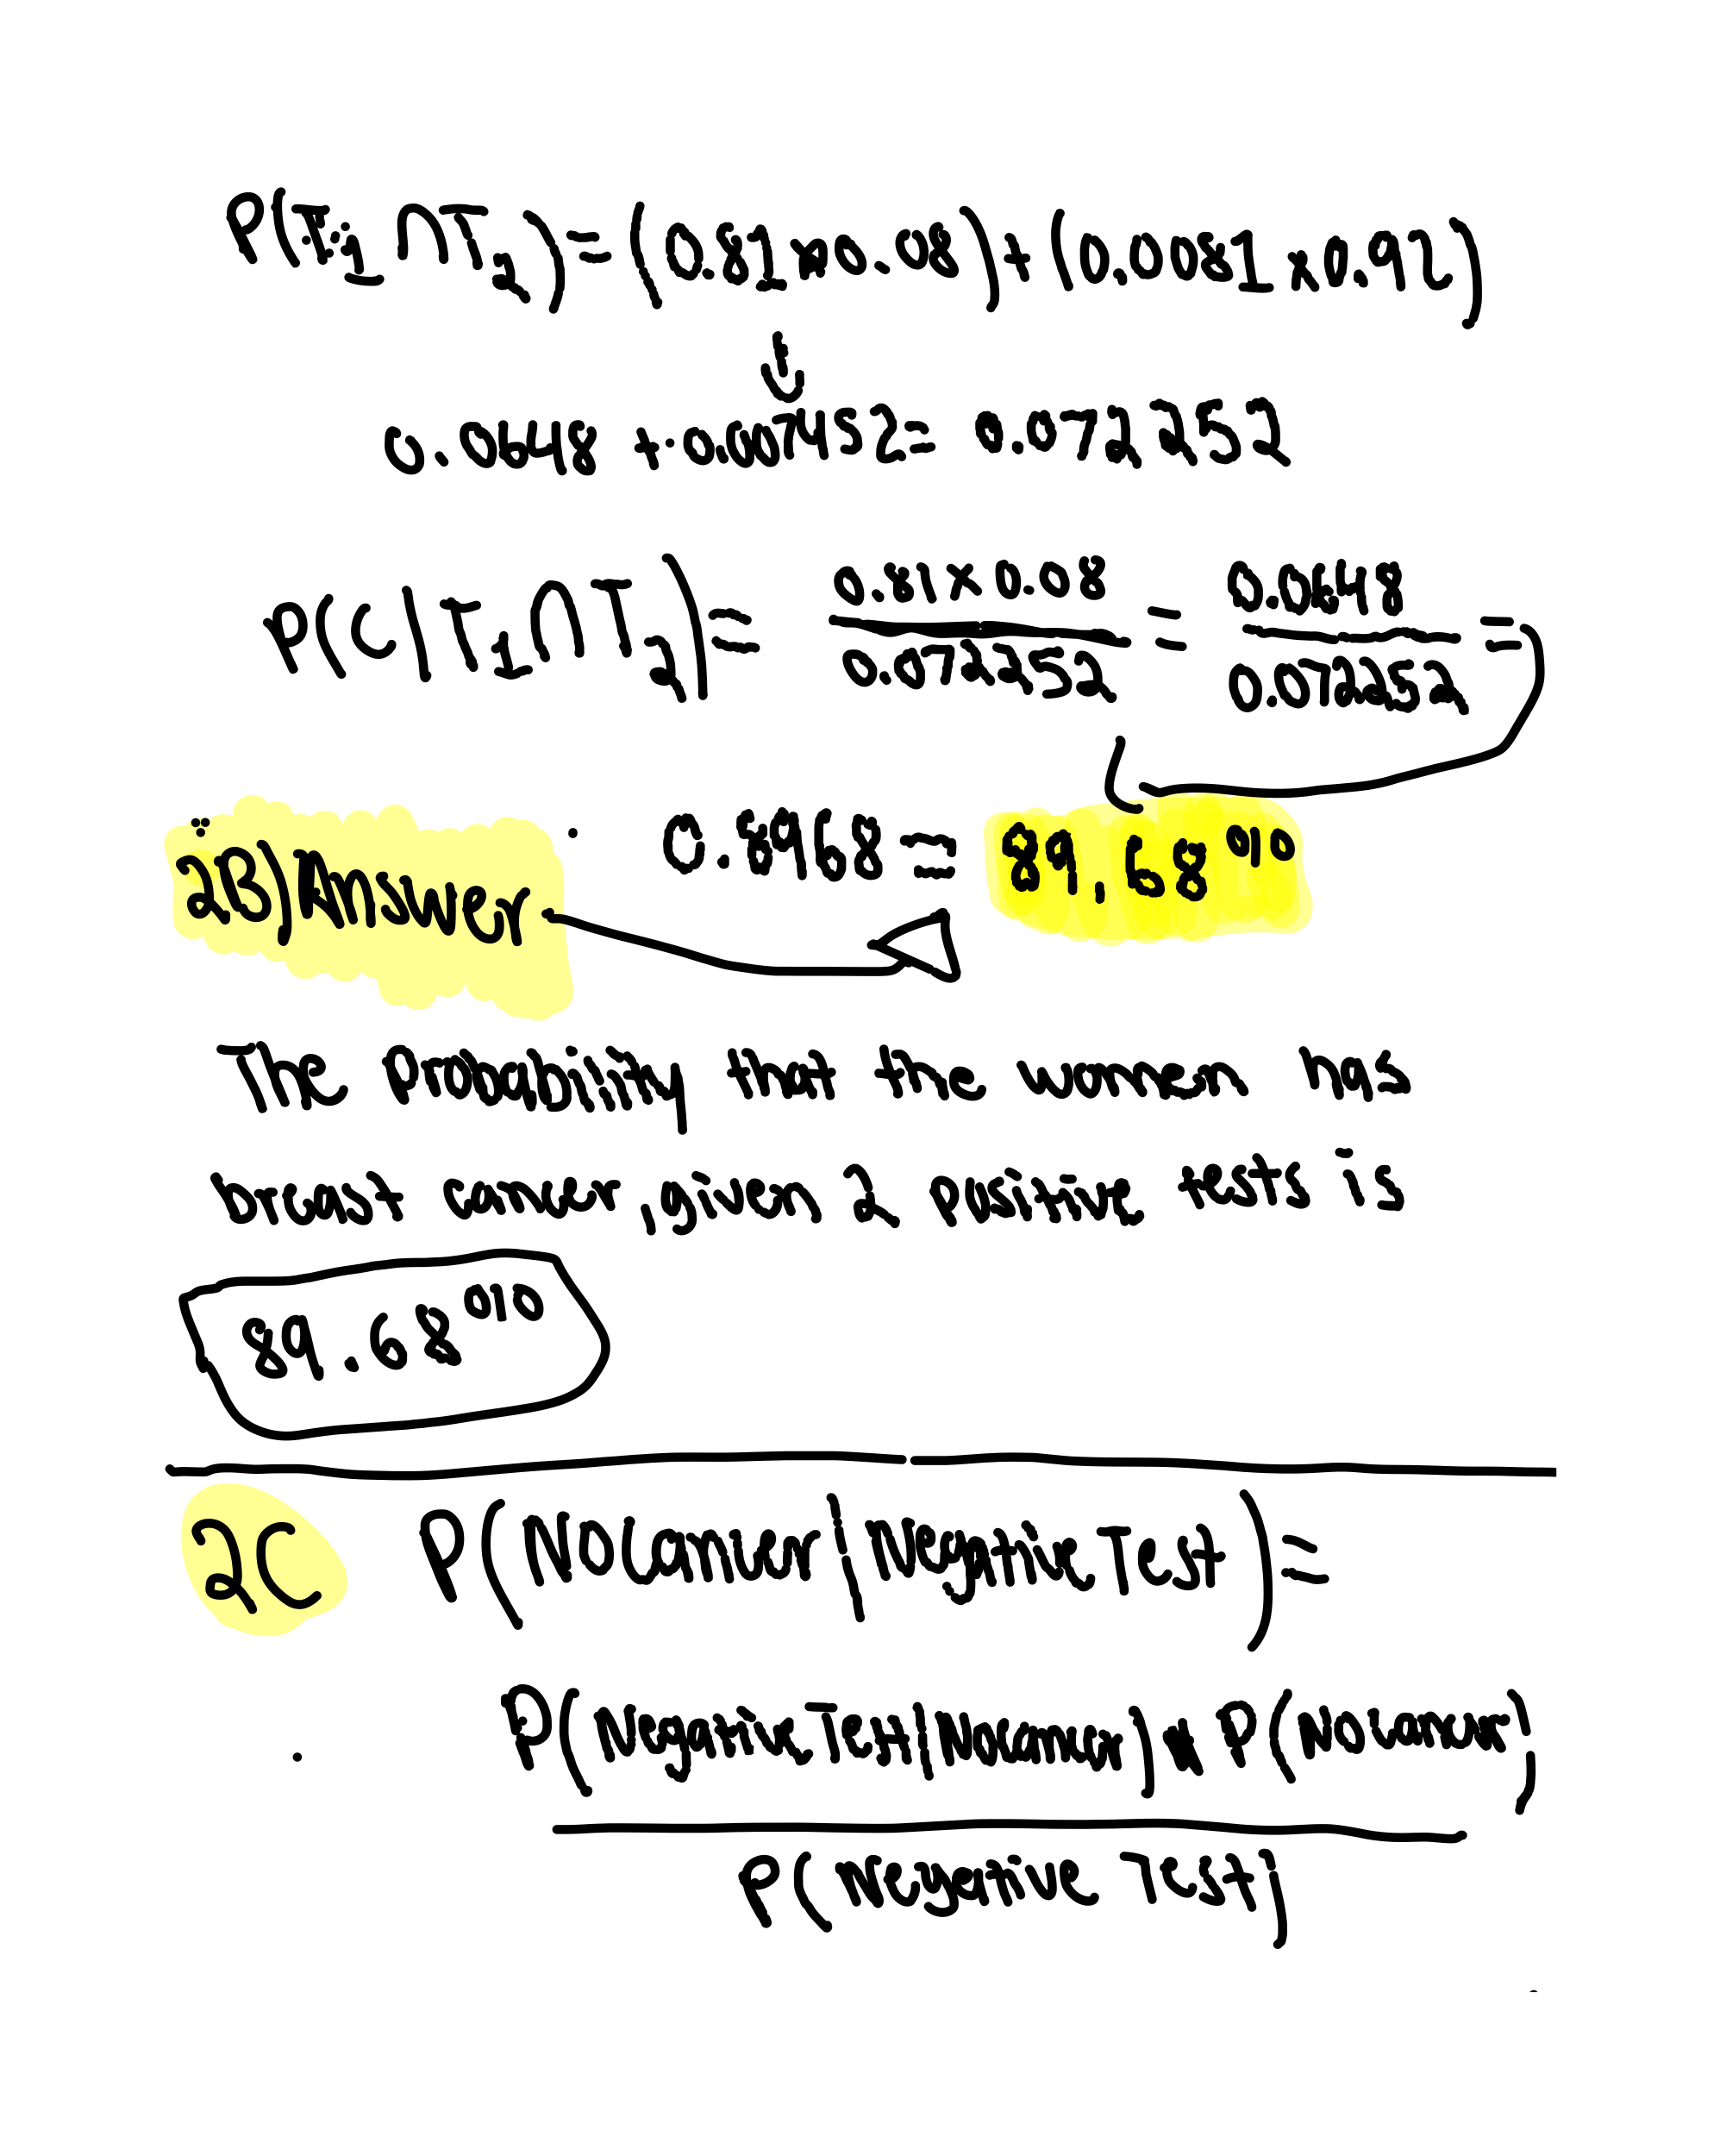 P(T₁ ∩ T₂) = (0.81 x 0.08) + (0.0081 x 0.92)
↓
0.0648 + 0.007452 = 0.072252
P(C|T₁ ∩ T₂) = 0.81 x 0.08 / 0.072252 = 0.0648 / 0.072252 =
0.8968 = 89.68%
2B) Answer
The probability that the women has
breast cancer given 2 positive tests is
89.68%
2C P(No Cancer | Negative Test) =
P(Negative Test | No cancer) x P(No cancer)
P(Negative Test)